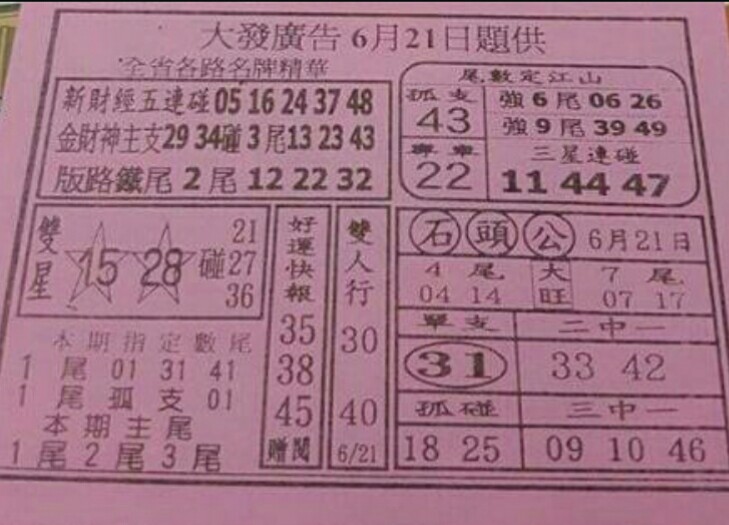 大發廣告6月21日題供
全省各路名牌精華
新財經五連碰 05 16 24 37 48
金財神主支 29 34碰 3 尾 13 23 43
版路鐵尾 2 尾 12 22 32
尾數定江山
孤支
43
強 6 尾 06 26
強 9 尾 39 49
聯車
22
三星連碰
11 44 47
雙星
15 28
碰
21
27
36
本期指定數尾
1 尾 01 31 41
1 尾孤支 01
本期主尾
1 尾 2 尾 3 尾
好運快報
35
38
45
贈閱
雙人行
30
40
6/21
石頭公 6月21日
4 尾
04 14
大旺
7 尾
07 17
單支
31
二中一
33 42
孤碰
18 25
三中一
09 10 46